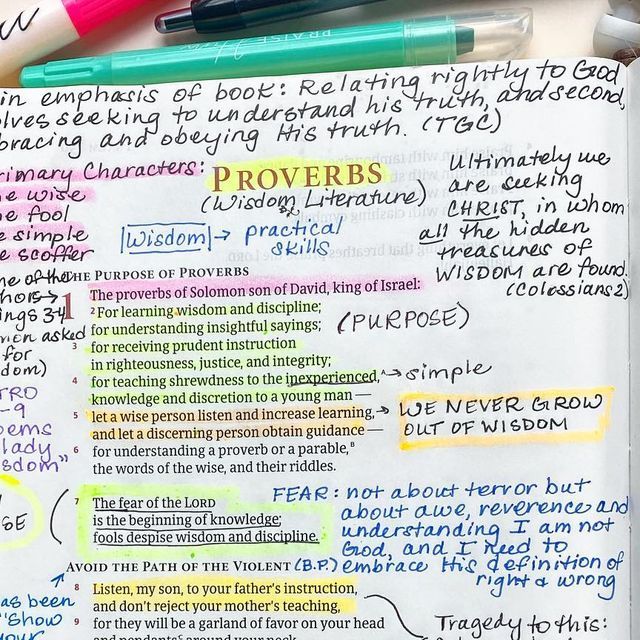 PRAISE
in emphasis of book: Relating rightly to God
olves seeking to understand his truth, and second,
bracing and obeying His truth. (TGC)
rimary Characters:
e wise
e fool
e simple
e scoffer
PROVERBS
(Wisdom Literature)
Wisdom → practical
skills
Ultimately we
are seeking
CHRIST, in whom
all the hidden
treasures of
WISDOM are found.
(Colossians 2)
THE PURPOSE OF PROVERBS
1 The proverbs of Solomon son of David, king of Israel:
2 For learning wisdom and discipline;
for understanding insightful sayings;
3 for receiving prudent instruction
in righteousness, justice, and integrity;
4 for teaching shrewdness to the inexperienced,
knowledge and discretion to a young man —
5 let a wise person listen and increase learning,
and let a discerning person obtain guidance —
6 for understanding a proverb or a parable,B
the words of the wise, and their riddles.
(PURPOSE)
→ simple
→ WE NEVER GROW
OUT OF WISDOM
me of the
hors →
ings 3-4
men asked
for
dom)
TRO
-9
oems
lady
sdom"
SE
7 The fear of the LORD
is the beginning of knowledge;
fools despise wisdom and discipline.
FEAR: not about terror but
about awe, reverence and
understanding I am not
God, and I need to
embrace His definition of
right & wrong
AVOID THE PATH OF THE VIOLENT (B.P.)
8 Listen, my son, to your father's instruction,
and don't reject your mother's teaching,
9 for they will be a garland of favor on your head
and pendants around your neck.
as been
"show
your
Tragedy to this: